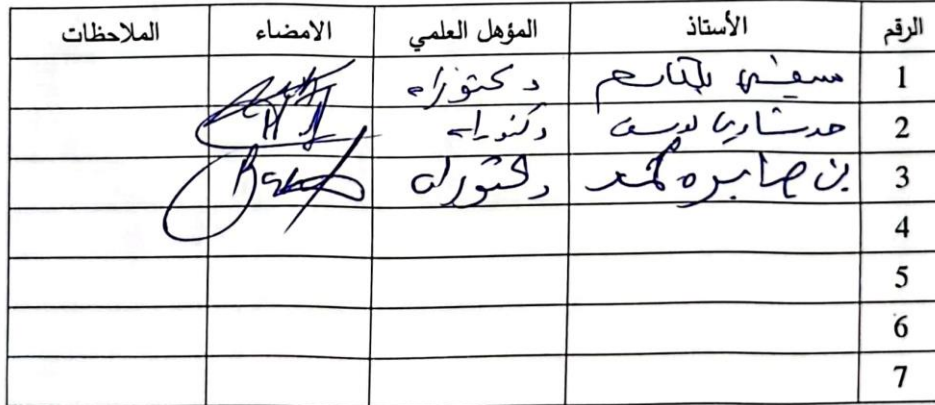 الرقم الأستاذ المؤهل العلمي الامضاء الملاحظات
1 بلقاسم دكتوراه
2 دكتوراه
3 بن صابره محمد دكتوراه
4
5
6
7